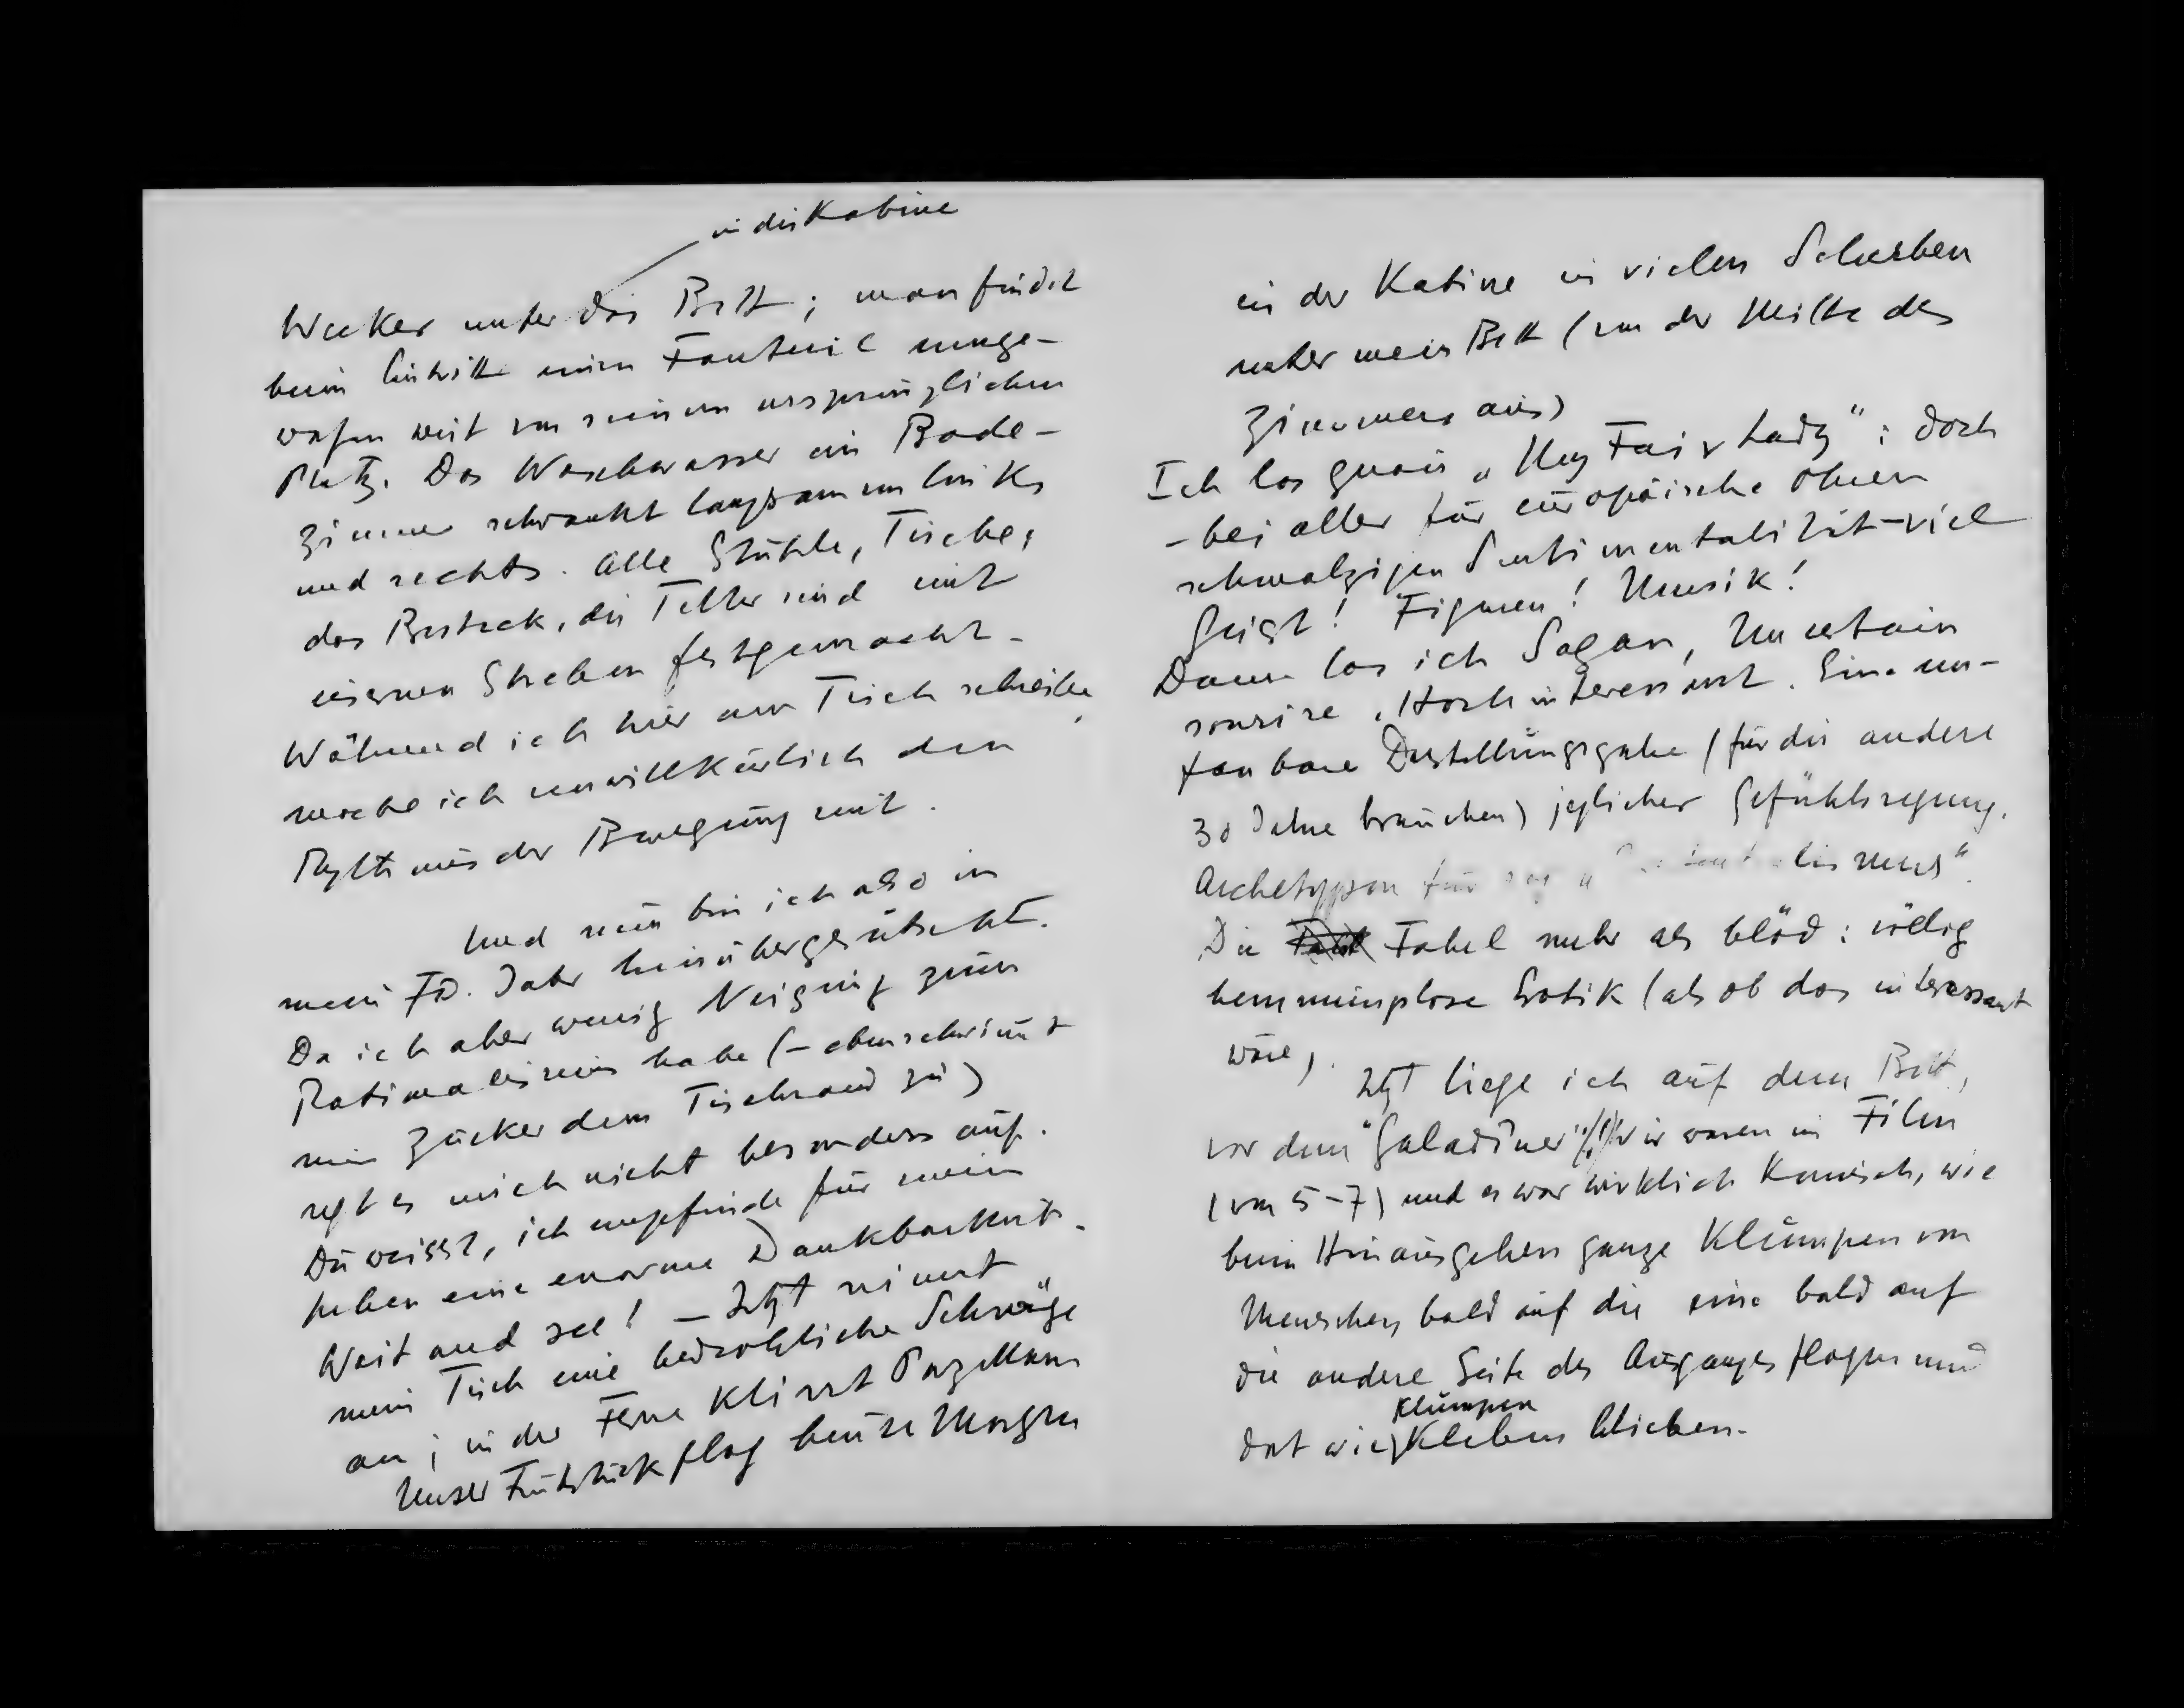 in die Kabine
Wecker unter das Bett; man findet
beim Eintritt einen Fauteuil umge-
worfen weit von seinem ursprünglichen
Platz. Das Waschwasser im Bade-
zimmer schwankt langsam um links
und rechts. Alle Stühle, Tische,
das Besteck, die Teller sind mit
eisernen Streben festgemacht.
Während ich hier am Tisch schreibe,
mache ich unwillkürlich den
Rythmus der Bewegung mit.
Und nun bin ich also in
mein 70. Jahr hinübergerutscht.
Da ich aber wenig Neigung zum
Rationalismus habe (– eben schwimmt
mein Zucker dem Tischrand zu)
regt es mich nicht besonders auf.
Du weisst, ich empfinde für mein
Leben eine enorme Dankbarkeit.
Wait and see! – Jetzt nimmt
mein Tisch eine bedrohliche Schräge
an; in der Ferne klirrt Porzellan
Unser Frühstück flog heute Morgen
in der Kabine in vielen Scherben
unter mein Bett (von der Mitte des
Zimmers aus)
Ich las quasi „My Fair Lady": doch
– bei aller für europäische Ohren
schmalzigen Sentimentalität – viel
Geist! Figuren! Musik!
Dann las ich Sagan, Un certain
sourire. Hochinteressant. Eine un-
fassbare Darstellungsgabe (für die andere
30 Jahre brauchen) jeglicher Gefühlsregung.
Archetypen für
Die Fabel mehr als blöd: völlig
hemmungslose Erotik (als ob das interessant
wäre).
Jetzt liege ich auf dem Bett,
vor dem "Galadîner"(!) Wir waren im Film
(von 5–7) und es war wirklich komisch, wie
beim Hinausgehen ganze Klumpen von
Menschen bald auf die eine bald auf
die andere Seite des Ausganges flogen und
Klumpen
dort wie kleben blieben.